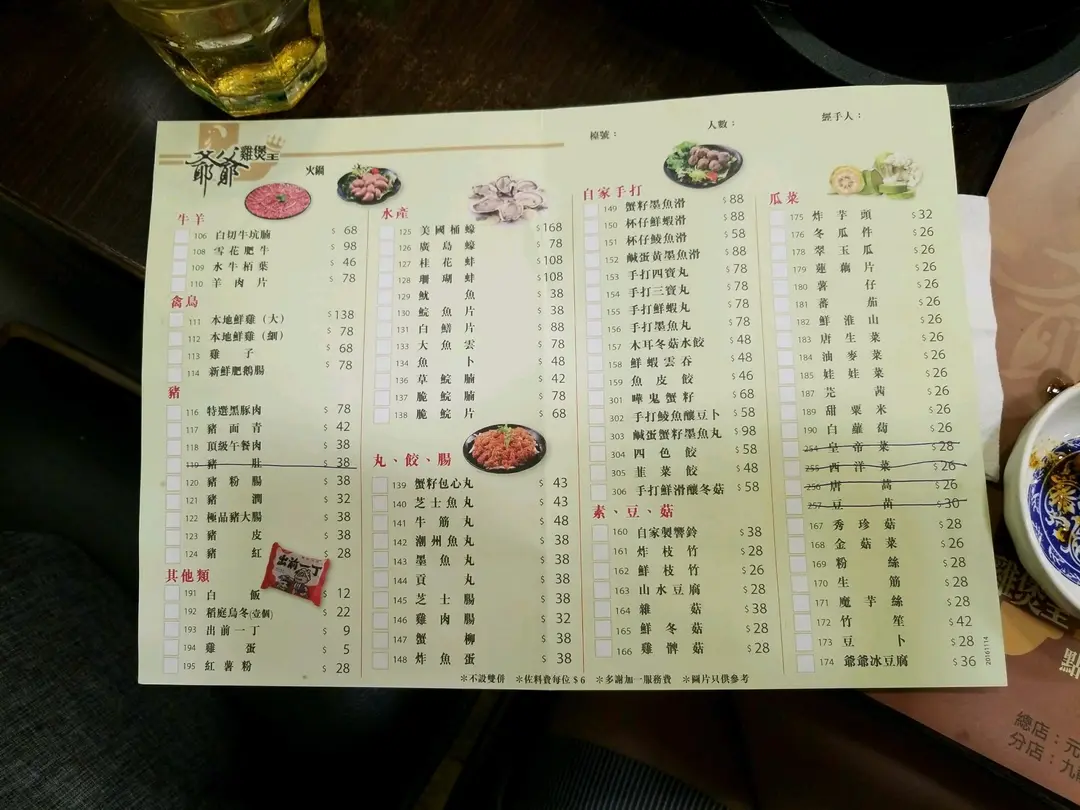 爺爺
雞煲王
火鍋
檯號：
人數：
經手人：
牛羊
106 白切牛坑腩 $ 68
108 雪花肥牛 $ 98
109 水牛栢葉 $ 46
110 羊肉片 $ 78
禽鳥
111 本地鮮雞（大） $138
112 本地鮮雞（細） $ 78
113 雞子 $ 68
114 新鮮肥鵝腸 $ 78
豬
116 特選黑豚肉 $ 78
117 豬面青 $ 42
118 頂級午餐肉 $ 38
119 豬肚 $ 38
120 豬粉腸 $ 38
121 豬潤 $ 32
122 極品豬大腸 $ 38
123 豬皮 $ 38
124 豬紅 $ 28
出前一丁
其他類
191 白飯 $ 12
192 稻庭烏冬(壹個) $ 22
193 出前一丁 $ 9
194 雞蛋 $ 5
195 紅薯粉 $ 28
水產
125 美國桶蠔 $168
126 廣島蠔 $ 78
127 桂花蚌 $108
128 珊瑚蚌 $108
129 魷魚 $ 38
130 鯇魚片 $ 38
131 白鱔片 $ 88
133 大魚雲 $ 78
134 魚卜 $ 48
136 草鯇腩 $ 42
137 脆鯇腩 $ 78
138 脆鯇片 $ 68
丸、餃、腸
139 蟹籽包心丸 $ 43
140 芝士魚丸 $ 43
141 牛筋丸 $ 48
142 潮州魚丸 $ 38
143 墨魚丸 $ 38
144 貢丸 $ 38
145 芝士腸 $ 38
146 雞肉腸 $ 32
147 蟹柳 $ 38
148 炸魚蛋 $ 38
自家手打
149 蟹籽墨魚滑 $88
150 杯仔鮮蝦滑 $88
151 杯仔鯪魚滑 $58
152 鹹蛋黃墨魚滑 $88
153 手打四寶丸 $78
154 手打三寶丸 $78
155 手打鮮蝦丸 $78
156 手打墨魚丸 $78
157 木耳冬菇水餃 $48
158 鮮蝦雲吞 $48
159 魚皮餃 $46
301 嘩鬼蟹籽 $68
302 手打鯪魚釀豆卜 $58
303 鹹蛋蟹籽墨魚丸 $98
304 四色餃 $58
305 韭菜餃 $48
306 手打鮮滑釀冬菇 $58
素、豆、菇
160 自家製響鈴 $38
161 炸枝竹 $28
162 鮮枝竹 $26
163 山水豆腐 $28
164 雜菇 $38
165 鮮冬菇 $28
166 雞髀菇 $28
瓜菜
175 炸芋頭 $32
176 冬瓜件 $26
178 翠玉瓜 $26
179 蓮藕片 $26
180 薯仔 $26
181 蕃茄 $26
182 鮮淮山 $26
183 唐生菜 $26
184 油麥菜 $26
185 娃娃菜 $26
187 芫茜 $26
189 甜粟米 $26
190 白蘿蔔 $26
254 皇帝菜 $28
255 西洋菜 $26
256 唐蒿 $26
257 豆苗 $30
167 秀珍菇 $28
168 金菇菜 $26
169 粉絲 $28
170 生筋 $28
171 魔芋絲 $28
172 竹笙 $42
173 豆卜 $28
174 爺爺冰豆腐 $36
20161114
＊不設雙併 ＊佐料費每位 $ 6 ＊多謝加一服務費 ＊圖片只供參考
雞煲王
點
總店：元
分店：九